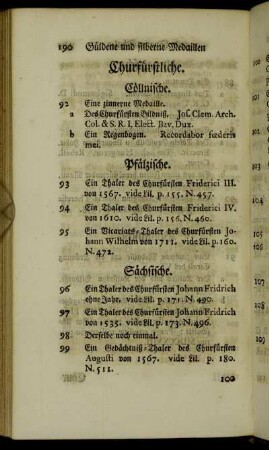 190 Güldene und silberne Medaillen
Churfürstliche.
Cöllnische.
92 Eine zinnerne Medaille.
a Des Churfürsten Bildniß. Jos. Clem. Arch.
Col. & S. R. I. Elect. Bav. Dux.
b Ein Regenbogen. Recordabor fœderis
mei.
Pfältzische.
93 Ein Thaler des Churfürsten Friderici III.
von 1567. vide Lil. p. 155. N. 457.
94 Ein Thaler des Churfürsten Friderici IV.
von 1610. vide Lil. p. 156. N. 460.
95 Ein Vicariats-Thaler des Churfürsten Jo-
hann Wilhelm von 1711. vide Lil. p. 160.
N. 472.
Sächsische.
96 Ein Thaler des Churfürsten Johann Fridrich
ohne Jahr. vide Lil. p. 171. N. 490.
97 Ein Thaler des Churfürsten Johann Fridrich
von 1535. vide Lil. p. 173. N. 496.
98 Derselbe noch einmal.
99 Ein Gedächtniß-Thaler des Churfürsten
Augusti von 1567. vide Lil. p. 180.
N. 511.
100